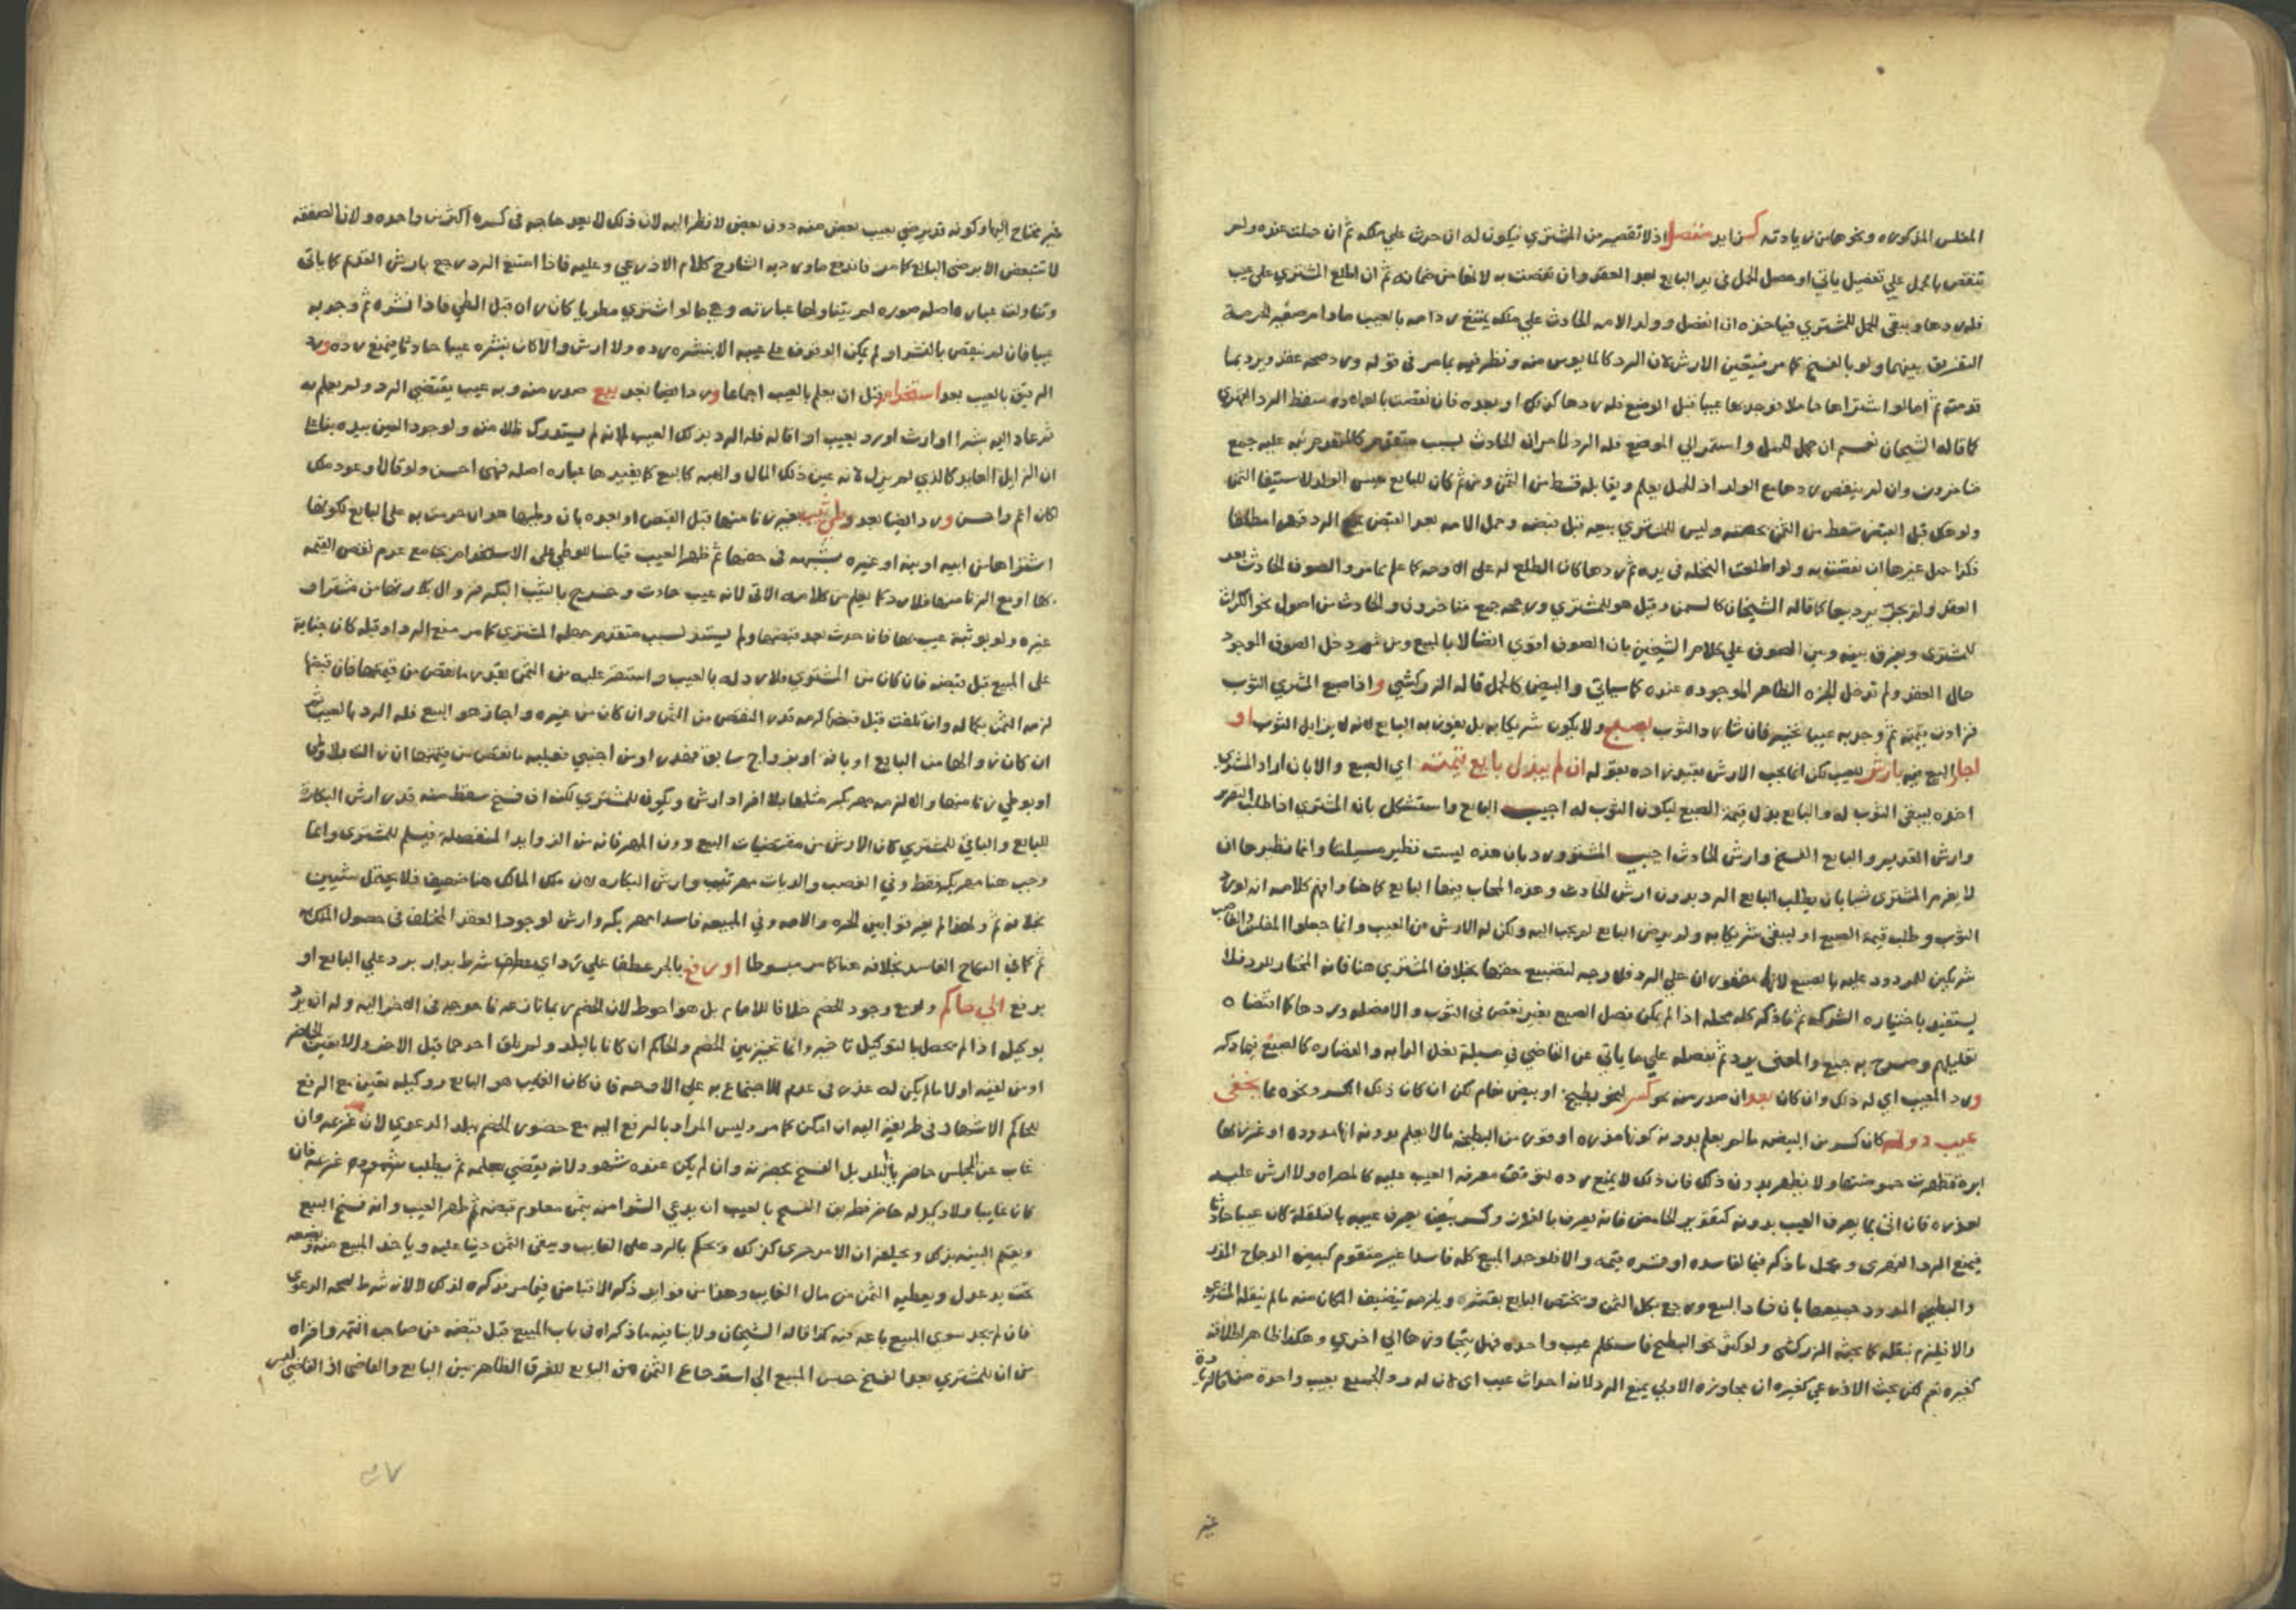 المفلس المذكوره ونحوها من زيادته كزايد منفصل اذ لا تقصير من المشتري فيكون له ان حدث علي ملكه ثم ان حملت عنده ولم
تنقص بالحمل علي تفصيل ياتي او حصل الحمل في يد البايع بعد العقد وان نقصت به لانها من ضمانه ثم ان اطلع المشتري علي عيب
فله ردها ويبقى الحمل للمشتري فياخذه ان انفصل وولد الامه الحادث علي ملكه يمتنع ردامه بالعيب مادام صغير لحرمة
التفريق بينهما ولو بالفسخ كما مر فيتعين الارش لان الرد كالمايوس منه ونظر فيه بما مر في
ثم اما لو اشتراها حاملا فوجد بها عيبا قبل الوضع فله ردها كذلك او بعده فان نقصت بالولاده سقط الرد القهري
كما قاله الشيخان نعم ان جهل الحمل واستمر الي الوضع فله الرد لما مر ان الحادث بسبب متقدم كالمتقدم جري عليه جمع
متاخرون وان لم ينقص ردها مع الولد اذ الحمل يعلم ويقابله قسط من الثمن ومن ثم كان للبايع حبس الولد لاستيفا الثمن
ولو هلك قبل القبض سقط من الثمن بحصته وليس للمشتري بيعه قبل قبضه وحمل الامه بعد القبض يمنع الرد قهرا مطلقا
فكذا حمل غيرها ان نقصت به ولو اطلعت النخله في يده ثم ردها كان الطلع له علي الاوجه كما علم مما مر والصوف الحادث بعد
العقد ولم يجز يرد بها كما قاله الشيخان كالسمن وقيل هو للمشتري ورجحه جمع متاخرون والحادث من اصول نحو الكراث
للمشتري ويفرق بينه وبين الصوف علي كلام الشيخين بان الصوف اقوي اتصالا بالمبيع ومن ثم دخل الصوف الموجود
حال العقد ولم تدخل الجزه الظاهر الموجوده عنده كما سياتي والبيض كالحمل قاله الزركشي واذا صبغ المشتري الثوب
فزادت قيمته ثم وجد به عيبا تخير فان شا رد الثوب بصبغ ولا يكون شريكا به بل يفوز به البايع لانه لا يزايل الثوب او
اجاز البيع فيه بارش للعيب لكن انما يجب الارش بقوله ان لم يبذل بايع قيمته اي الصبغ والا بان اراد المشتري
اخذه ليبقي الثوب له والبايع بذل قيمة الصبغ ليكون الثوب له اجيب البايع واستشكل بان المشتري اذا طلب التقرير
وارش القديم والبايع الفسخ وارش الحادث اجيب المشتري ورد بان هذه ليست نظير مسيلتنا وانما نظيرها ان
لا يغرم المشتري شيا بان يطلب البايع الرد بدون ارش الحادث وهذه المجاب فيها البايع كما هنا وافهم كلامه انه لو رد
الثوب وطلب قيمة الصبغ او ليبقى شريكا به ولم يرض البايع لم يجب اليه ولكن له الارش من العيب وانما جعلوا المفلس والغاصب
شريكين للمردود عليه بالصبغ لانهما مقهوران علي الرد فلا وجه لتضييع حقهما بخلاف المشتري هنا فانه المختار للرد فلا
يستفيد باختياره الشركه ثم ما ذكر كله محله اذا لم يمكن فصل الصبغ بغير نقص في الثوب والا فصله ورد كما اقتضاه
تعليلهم وصرح به جمع والمعنى يرد ثم نفصله علي ما ياتي عن القاضي في مسيلة نعل الدابه والقصاره كالصبغ فيما ذكر
ورد المعيب اي له ذلك وان كان بعد ان صدر منه نحو كسر لنحو بطيخ او بيض نعام لكن ان كان ذلك الكسر ونحوه مما يخفى
عيب دونه كان كسر من البيضه ما لم يعلم بدونه كونها مذره او قور من البطيخه ما لا يعلم بدونه انها مدوده او غرز بها
ابرة فظهرت حموضتها ولا يظهر بدون ذلك فان ذلك لا يمنع رده لتوقف معرفة العيب عليه كالمصراه ولا ارش عليه
لعذره فان اتى بما يعرف العيب بدونه كتقوير الحامض فانه يعرف بالغرز وكسر بيض يعرف عيبه بالقلقلة كان عيبا حادثا
فيمنع الرد القهري ومحل ما ذكر فيما لفاسده او قشره قيمه والا فلو وجد المبيع كله فاسدا غير متقوم كبيض الدجاج المذر
والبطيخ المدود جميعها بان فساد البيع ورجع بكل الثمن ويختص البايع بقشره ويلزمه تنظيف المكان منه ما لم ينقله المشتري
والا فيلزم بنقله كما بحثه الزركشي ولو كثر نحو البطيخ فاستعلم عيب واحده فهل يتجاوزها الي اخري وهكذا ظاهر اطلاقه
كغيره نعم لكن بحث الاذرعي كغيره ان مجاوزه الاولي يمنع الرد لانه احداث عيب اي لان له رد الجميع بعيب واحدة فالزيادة
غير
غير محتاج اليها وكونه قد يرضي بعيب بعض منه دون بعض لا نظر اليه لان ذلك لا يعد حاجه في كسره اكثر من واحده ولان الصفقه
لا تتبعض الا برضى البايع كما مر فاندفع ما رد به الشارح كلام الاذرعي وعليه فاذا امتنع الرد رجع بارش القديم كما ياتي
وتناولت عباره اصله صوره لم يتناولها عبارته وهي ما لو اشتري مطويا كان راه قبل الطي فاذا نشره ثم وجد به
عيبا فان لم ينقص بالنشر او لم يمكن الوقوف علي عيبه الا بنشره رده ولا ارش والا كان بنشره عيبا حادثا فيمتنع رده ورد
الرقيق بالعيب بعد استخدام قبل ان يعلم بالعيب اجماعا ورد ايضا بعد بيع صدر منه وبه عيب يقتضي الرد ولم يعلم به
ثم عاد اليه بشرا او ارث او رد بعيب او اقاله فله الرد بذلك العيب لانه لم يستدرك ظلامته ولوجود العين بيده بنا علي
ان الزايل العايد كالذي لم يزل لانه عين ذلك المال والهبه كالبيع كما يفيدها عباره اصله فهي احسن ولو قال او عود ملك
لكان اعم واحسن ورد ايضا بعد وطئ ثيب بغير زنا منها قبل القبض او بعده بان وطيها هو ان حرمت به على البايع لكونها
اشتراها من ابيه او ابنه او غيره بشبهه في حقها ثم ظهر العيب قياسا للوطئ علي الاستخدام بجامع عدم نقص القيمه
بها اومع الزنا منها فلا رد كما يعلم من كلامه الاتي لانه عيب حادث وخرج بالثيب البكر فزوال بكارتها من مشتر او
غيره ولو بوثبة عيب بها فان حدث بعد قبضها ولم يستند لسبب متقدم جهله المشتري كما مر منع الرد او قبله كان جناية
على المبيع قبل قبضه فان كان من المشتري فلا رد له بالعيب واستقر عليه من الثمن بقدر ما نقص من قيمتها فان قبضها
لزمه الثمن بكماله وان تلفت قبل قبضها لزمه قدر النقص من الثمن وان كان من غيره واجاز هو البيع فله الرد بالعيب ثم
ان كان زوالها من البايع او بافة او بزواج سابق فهدر او من اجنبي فعليه ما نقص من قيمتها ان زالت بلا وطئ
او بوطئ زنا منها والا لزمه مهر بكر مثلها بلا افراد ارش ويكون للمشتري لكنه ان فسخ سقط منه قدر ارش البكارة
للبايع والباقي للمشتري كان الارش من مقتضيات البيع دون المهر فانه من الزوايد المنفصلة فيسلم للمشتري وانما
وجب هنا مهر بكر فقط وفي الغصب والديات مهر ثيب وارش البكاره لان ملك المالك هنا ضعيف فلا يحتمل شيين
بخلافه ثم ولهذا لم يفرقوا بين الحره والامه وفي المبيعه فاسدا مهر بكر وارش لوجود العقد المختلف في حصول الملك به
ثم كما في النكاح الفاسد بخلافه هنا كما مر مبسوطا او رفع بالجر عطفا علي رد اي شرط بدار برد علي البايع او
برفع الي حاكم ولو مع وجود الخصم خلافا للامام بل هو احوط لان الخصم ربما نازعه فاحوجه في الاخر اليه وله ان يرد
بوكيل اذا لم يحصل بالتوكيل تاخير وانما تخير بين الخصم والحاكم ان كانا بالبلد ولم يلق احدهما قبل الاخر والا تعين الحاضر
او من لقيه اولا ما لم يكن له عذر في عدم الاجتماع به علي الاوجه فان كان الغايب هو البايع ووكيله تعين مع الرفع
للحاكم الاشهاد في طريقه اليه ان امكن كما مر وليس المراد بالرفع اليه مع حضور الخصم بالبلد الدعوي لان غريمه وان
غاب عن المجلس حاضر بالبلد بل الفسخ بحضرته وان لم يكن عنده شهود لانه يقضي بعلمه ثم يطلب غريمه فان
كان غايبا ولا وكيل له حاضر فطريق الفسخ بالعيب ان يدعي الشرا منه بثمن معلوم قبضه ثم ظهر العيب وانه فسخ البيع
ويقيم البينه بذلك ويحلفه ان الامر جري كذلك ويحكم بالرد علي الغايب ويبقى الثمن دينا عليه وياخذ المبيع منه ويضعه
تحت يد عدل ويعطيه الثمن من مال الغايب وهذا من فوايد ذكر الاقباض فيما مر فذكره لذلك لا لانه شرط لصحه الدعوي
فان لم يجد سوى المبيع باعه فيه كذا قاله الشيخان ولا ينافيه ما ذكراه في باب المبيع قبل قبضه عن صاحب التتمه واقراه
من ان للمشتري بعد الفسخ حبس المبيع الي استرجاع الثمن من البايع للفرق الظاهر بين البايع والقاضي اذ القاضي ليس